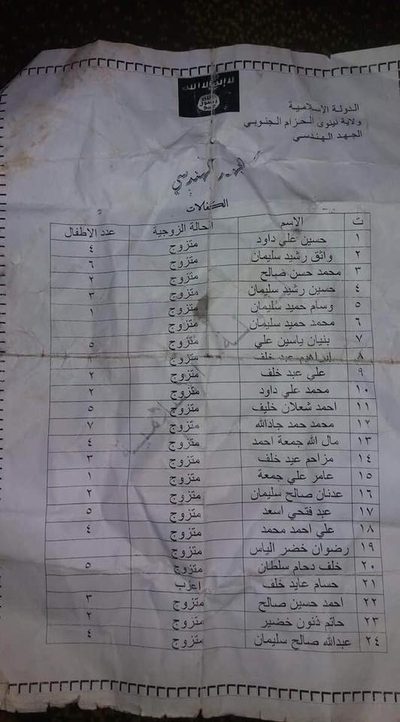 لا إله إلا الله
الله
رسول
محمد
الدولة الإسلامية
ولاية نينوى الحزام الجنوبي
الجهد الهندسي
الكفلات
ت الإسم الحالة الزوجية عدد الاطفال
حسين علي داود متزوج ٤
٢ واثق رشيد سليمان متزوج ٦
٣ محمد حسن صالح متزوج ٢
٤ حسين رشيد سليمان متزوج ٣
٥ وسام حميد سليمان متزوج ١
٦ محمد حميد سليمان متزوج
٧ بنيان ياسين علي متزوج ٥
٨ ابراهيم عبد خلف متزوج
٩ علي عبد خلف متزوج ٢
١٠ محمد علي داود متزوج ٢
١١ احمد شعلان خليف متزوج ٥
١٢ محمد حمد جادالله متزوج ٧
١٣ مال الله جمعة احمد متزوج ٤
١٤ مزاحم عبد خلف متزوج ٣
١٥ عامر علي جمعة متزوج ١
١٦ عدنان صالح سليمان متزوج ٢
١٧ عبد فتحي اسعد متزوج ٥
١٨ علي احمد محمد متزوج ٤
١٩ رضوان خضر الياس متزوج
٢٠ خلف دحام سلطان متزوج ٥
٢١ حسام عايد خلف اعزب
٢٢ احمد حسين صالح متزوج ٣
٢٣ حاتم ذنون خضير متزوج ٢
٢٤ عبدالله صالح سليمان متزوج ٤